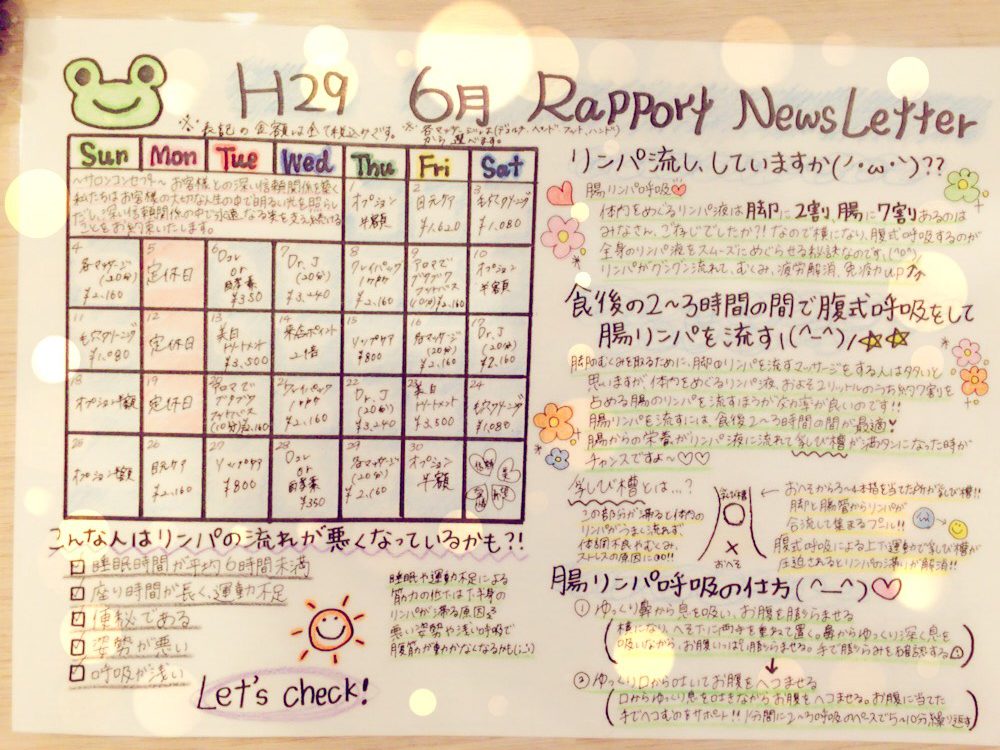 H29 6月 Rapport NewsLetter
※表記の金額は全て税込みです。※各マッサージは(デコルテ、ヘッド、フット、ハンド)
から選べます。
Sun Mon Tue Wed Thu Fri Sat
〜サロンコンセプト〜 お客様との深い信頼関係を築く
私たちはお客様の大切な人生の中で明るい光を照らし
だし、深い信頼関係の中で永遠なる美を支え続ける
ことをお約束いたします。
1 オプション 半額
2 目元ケア ¥1,620
3 毛穴クリーニング ¥1,080
4 各マッサージ (20分) ¥2,160
5 定休日
6 or 酵素 ¥350
7 Dr.J (20分) ¥3,240
8 クレイパック ¥2,160
9 アロマで ブクブク フットバス (10分)¥2,160
10 オプション 半額
11 毛穴クリーニング ¥1,080
12 定休日
13 美白 トリートメント ¥3,500
14 来店ポイント 2倍
15 リップケア ¥800
16 各マッサージ (20分) ¥2,160
17 Dr.J (20分) ¥2,160
18 オプション半額
19 定休日
20 アロマで ブクブク フットバス (10分)¥2,160
21 クレイパック ¥2,160
22 Dr.J (20分) ¥3,240
23 美白 トリートメント ¥3,500
24 毛穴クリーニング ¥1,080
25 オプション半額
26 目元ケア ¥2,160
27 リップケア ¥800
28 or 酵素 ¥350
29 各マッサージ (20分) ¥2,160
30 オプション 半額
こんな人はリンパの流れが悪くなっているかも?!
睡眠時間が平均6時間未満
座り時間が長く、運動不足
便秘である
姿勢が悪い
呼吸が浅い
睡眠や運動不足による
筋力の低下は下半身の
リンパが滞る原因を
悪い姿勢や浅い呼吸で
腹筋力が動かなくなるかも
Let's check!
リンパ流し、していますか(´・ω・`)??
腸リンパ呼吸♡
体内をめぐるリンパ液は脚に2割、腸に7割あるのは
みなさん、ご存じでしたか?! なので横になり、腹式呼吸するのが
全身のリンパ液をスムーズにめぐらせる秘訣なのです。
リンパがグングン流れて、むくみ、疲労解消、免疫力up
食後の2〜3時間の間で腹式呼吸をして
腸リンパを流す\(^-^)/☆☆
脚のむくみを取るために、脚のリンパを流すマッサージをする人は多いと
思いますが、体内をめぐるリンパ液、およそ2リットルのうち約7割を
占める腸のリンパを流すほうが効率が良いのです!!
腸リンパを流すには、食後2〜3時間の間が最適♥
腸からの栄養がリンパ液に流れて乳び槽が満タンになった時が
チャンスですよ〜♡♡
乳び槽とは…?
この部分が滞ると体内の
リンパがうまく流れず、
体調不良やむくみ、
ストレスの原因に!!
乳び槽
おへそ
← おへそから3〜4本指を当てた所が乳び槽!!
脚と腸管からリンパが
合流して集まるプール!!
腹式呼吸による上下運動で乳び槽が
圧迫されるとリンパの滞りが解消!!
腸リンパ呼吸の仕方(^-^)♡
①ゆっくり鼻から息を吸い、お腹を膨らませる
(横になり、へそ下に両手を重ねて置く。鼻からゆっくり深く息を
吸いながら、お腹いっぱい膨らませる。手で膨らみを確認する)
↓
②ゆっくり口から吐いてお腹をヘコませる
(口からゆっくり息を吐きながらお腹をヘコませる。お腹に当てた
手でヘコむのをサポート!! 1分間に2〜3呼吸のペースで5〜10分繰り返す)